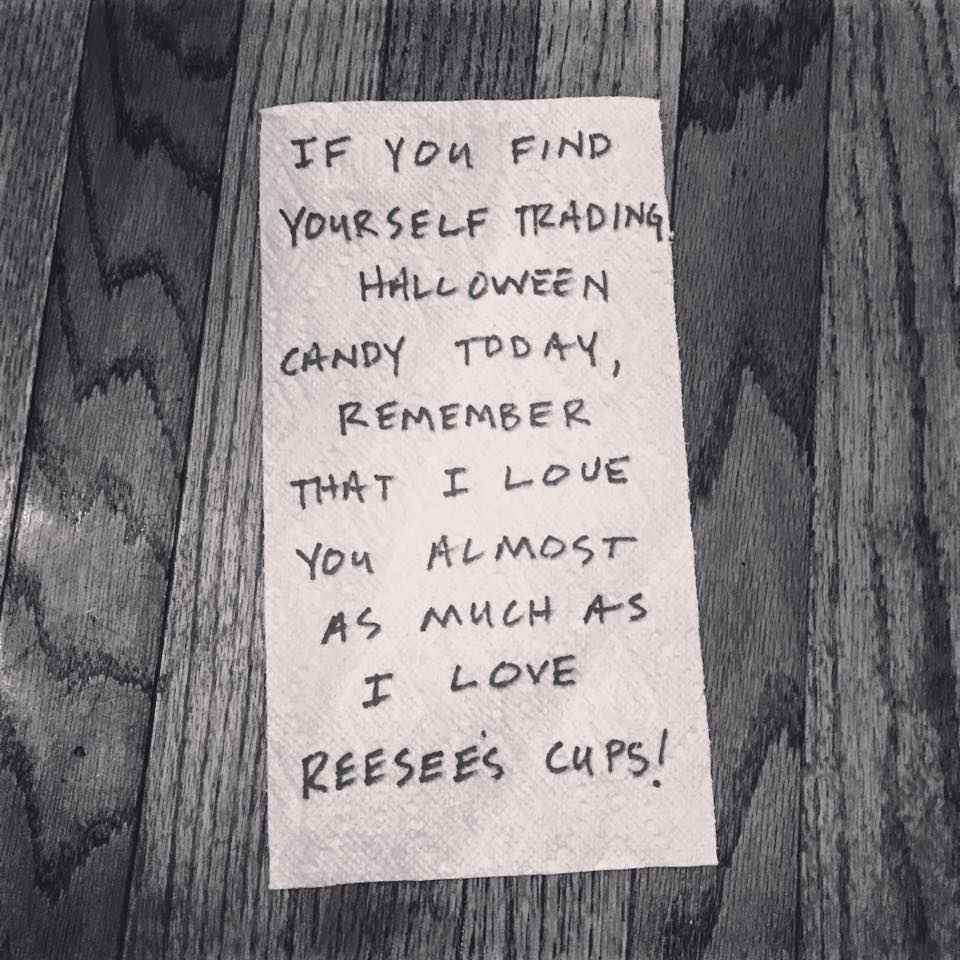 IF YOU FIND
YOURSELF TRADING
HALLOWEEN
CANDY TODAY,
REMEMBER
THAT I LOVE
YOU ALMOST
AS MUCH AS
I LOVE
REESEE'S CUPS!